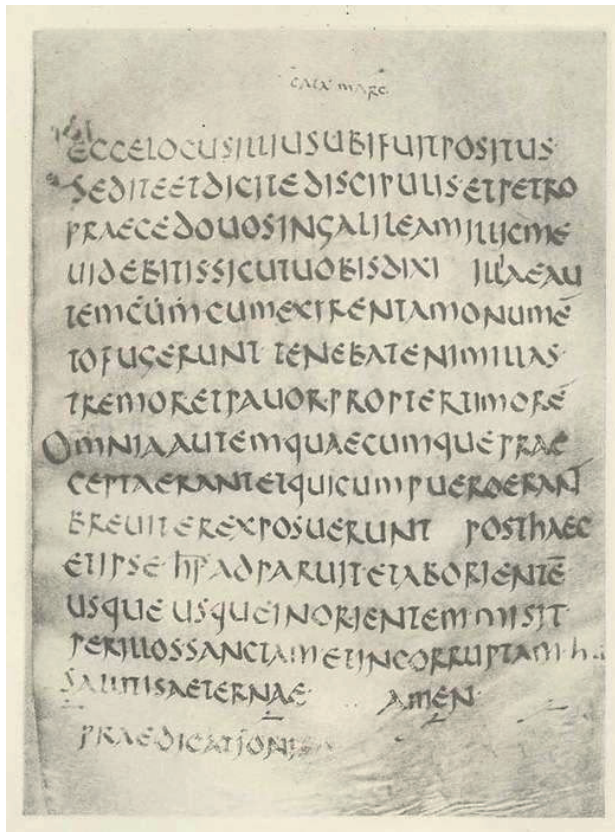 CATA MARC
ECCE LOCUS ILLIUS UBI FUIT POSITUS
SED ITE ET DICITE DISCIPULIS ET PETRO
PRAECEDO UOS IN GALILEAM ILLIC ME
UIDEBITIS SICUT UOBIS DIXI ILLAE AU
TEM CUM CUM EXIRENT A MONUMĒ
TO FUGERUNT TENEBAT ENIM ILLAS
TREMOR ET PAUOR PROPTER TIMORĒ
OMNIA AUTEM QUAECUMQUE PRAE
CEPTA ERANT ET QUI CUM PUERO ERANT
BREUITER EXPOSUERUNT POST HAEC
ET IPSE H̅I̅S̅ ADPARUIT ET AB ORIENTĒ
USQUE USQUE IN ORIENTEM MISIT
PER ILLOS SANCTAM ET INCORRUPTAM
SALUTIS AETERNAE AMEN
PRAEDICATIONIS